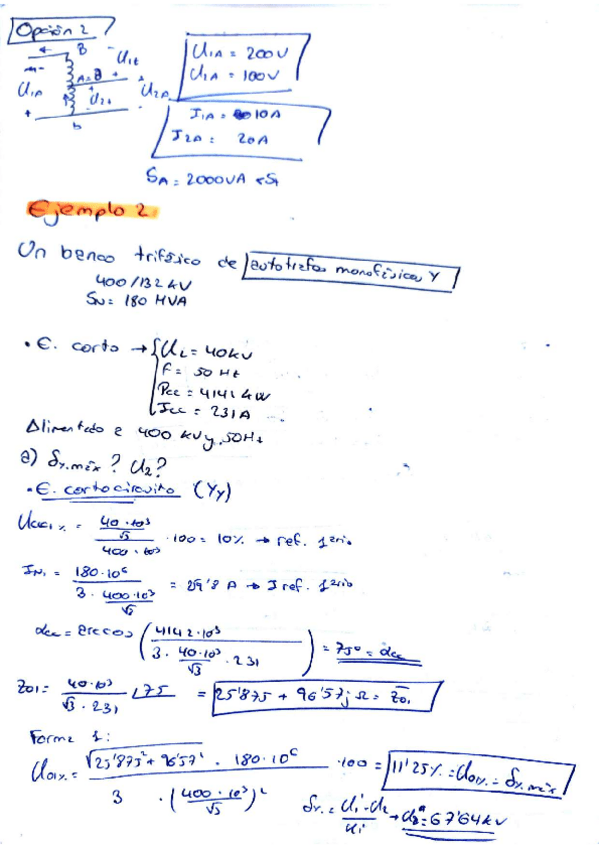 Opción 2
B U1t
U1A A=B U2t U2A
b
U1A = 200V
U1A = 100V
I1A = 10A
I2A = 20A
SA = 2000VA <St
Ejemplo 2
Un banco trifásico de autotrafos monofásicos Y
400/132 kV
SN = 180 MVA
• E. corto → { UL = 40kV
F = 50 Ht
Pcc = 4141 kW
Icc = 231 A
Alimentado a 400 kV y 50Ht
a) δ%.máx? U2?
• E. cortocircuito (Yy)
Ucc1% = (40·10³/√3)/(400·10³) · 100 = 10% → ref. 1ario
IN1 = 180·10⁶/(3·400·10³/√3) = 259'8 A → I ref. 1ario
αcc = arccos (4142·10³/(3·40·10³/√3·231)) = 75º = αcc
Z01 = 40·10³/(√3·231) ∠75 = 25'875 + 96'57j Ω = Z01
Forma 1:
U01% = √(25'875² + 96'57²) · 180·10⁶/(3·(400·10³/√3)²) · 100 = 11'25% = U01% = δ%.máx
δ% = (U1-U2)/U1 → U2 = 67'64 kV